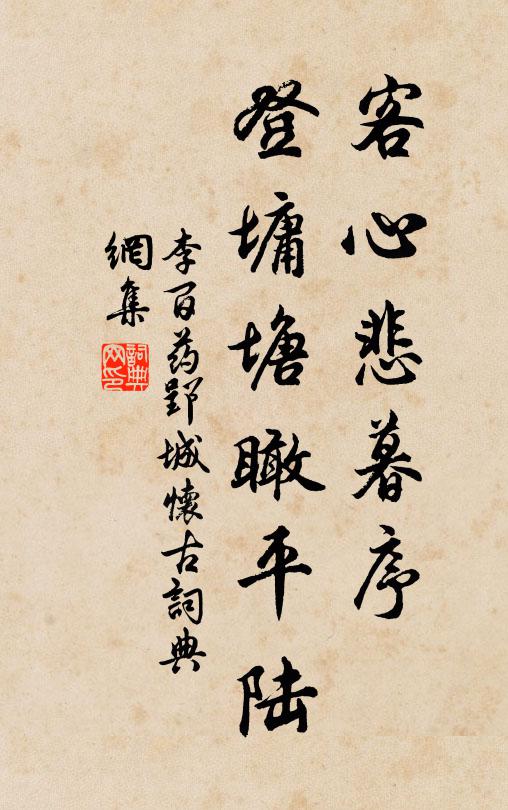 客心悲暮序
登墉塘瞰平陆
李百药郢城懷古詞典
網集
詞典
网印